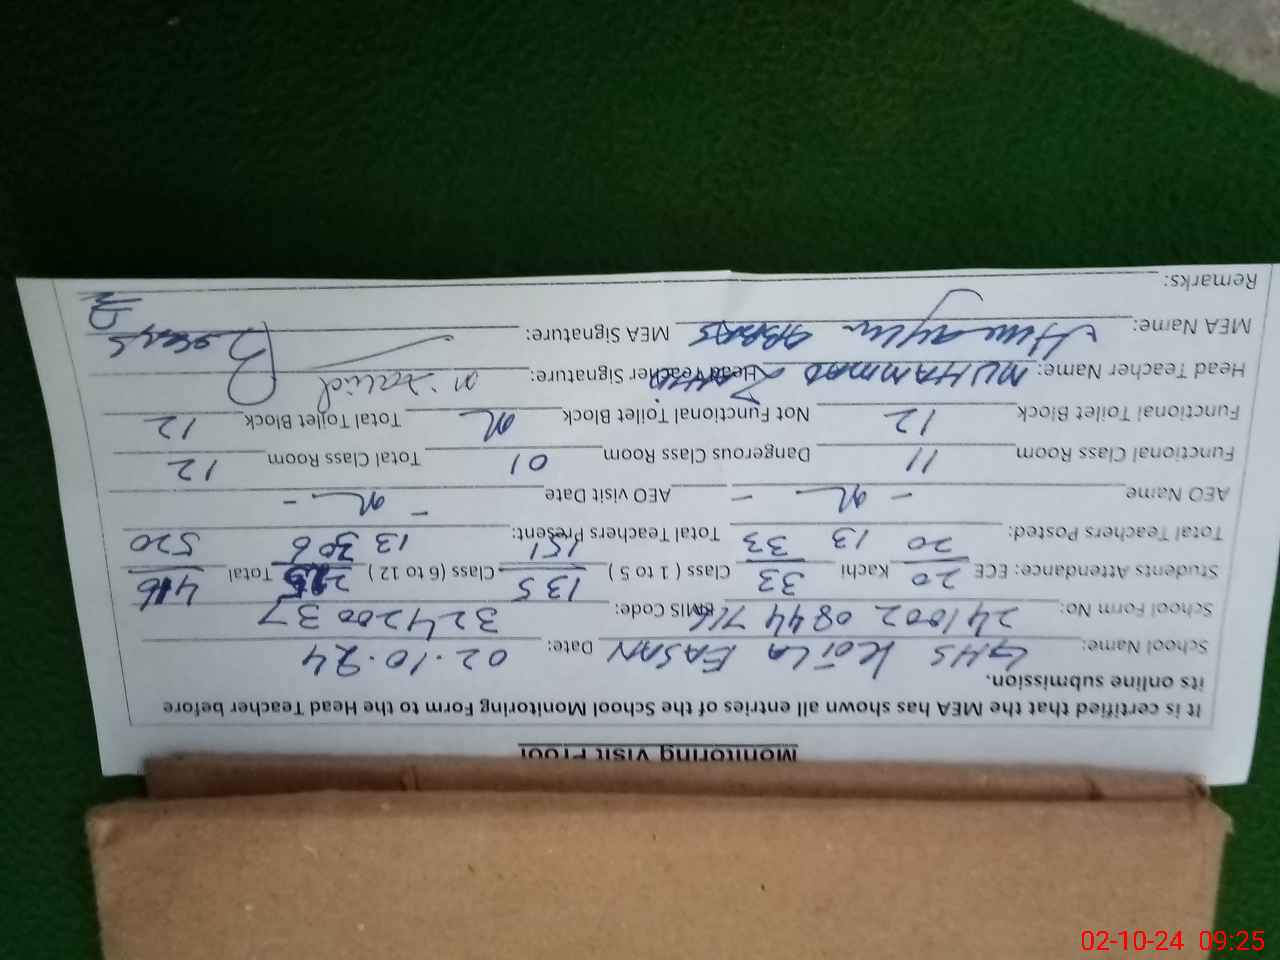 Monitoring Visit Proof
It is certified that the MEA has shown all entries of the School Monitoring Form to the Head Teacher before
its online submission.
School Name: GHS Kotla EASAN Date: 02.10.24
School Form No: 241002 0844 716 EMIS Code: 32420037
Students Attendance: ECE 20/20 Kachi 33/33 Class ( 1 to 5 ) 135/151 Class (6 to 12 ) /306 Total 416/520
Total Teachers Posted: 13 Total Teachers Present: 13
AEO Name - - AEO visit Date - -
Functional Class Room 11 Dangerous Class Room 01 Total Class Room 12
Functional Toilet Block 12 Not Functional Toilet Block Total Toilet Block 12
Head Teacher Name: MUHAMMAD Head Teacher Signature:
MEA Name: Humayun ABBAS MEA Signature:
Remarks:
02-10-24 09:25